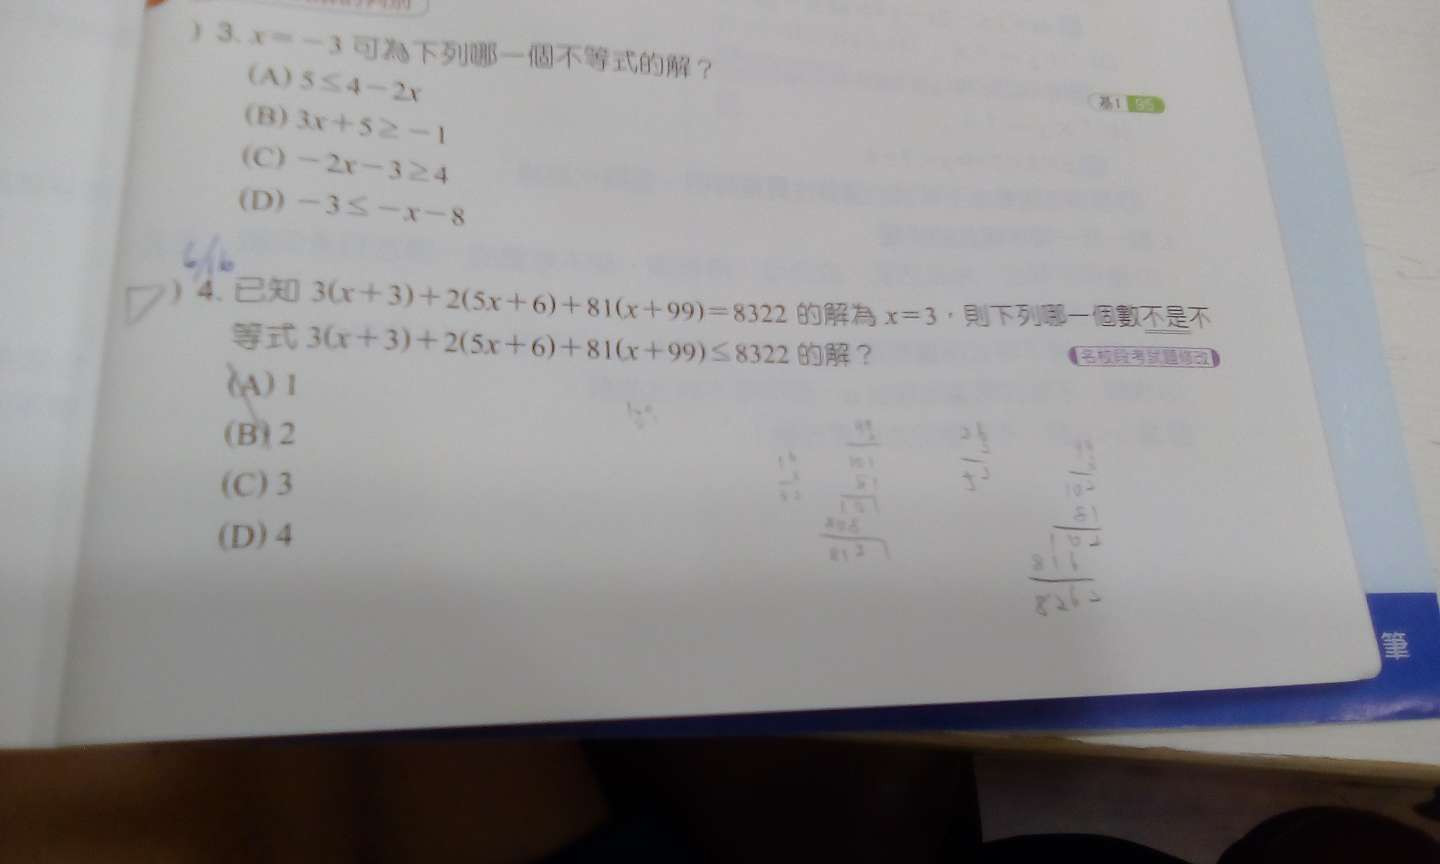 ) 3. x＝－3 可為下列哪一個不等式的解？
基1 95
(A) 5≤4－2x
(B) 3x＋5≥－1
(C) －2x－3≥4
(D) －3≤－x－8
6/16
) 4. 已知 3(x＋3)＋2(5x＋6)＋81(x＋99)＝8322 的解為 x＝3，則下列哪一個數不是不
等式 3(x＋3)＋2(5x＋6)＋81(x＋99)≤8322 的解？
名校段考試題修改
(A) 1
(B) 2
(C) 3
(D) 4
101
81
102
81
102
816
8262
筆